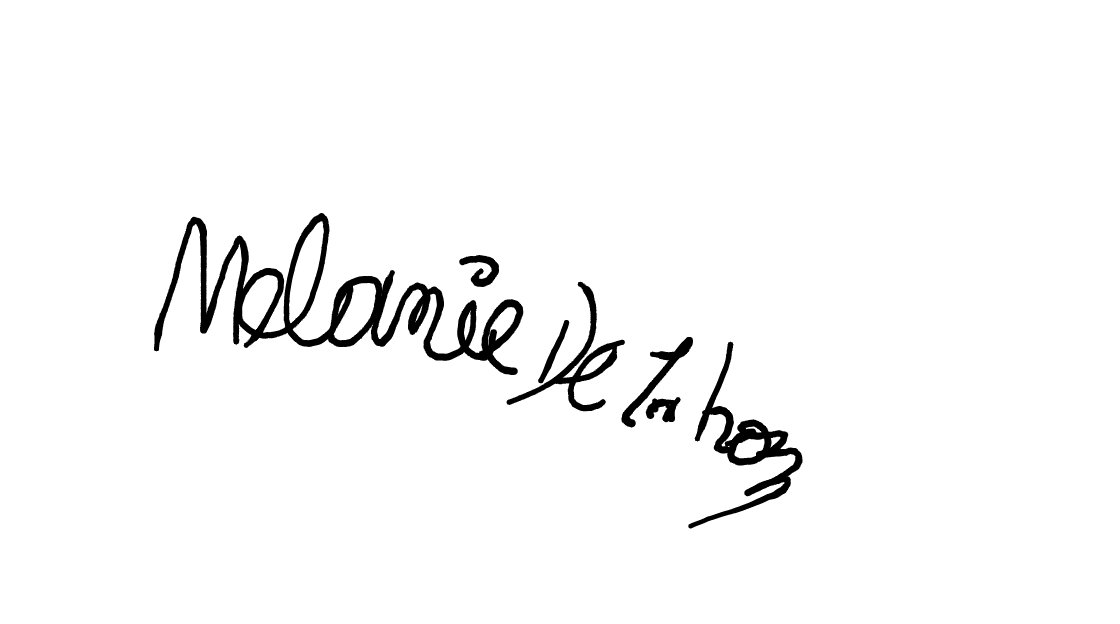 Melanie De Inhoz